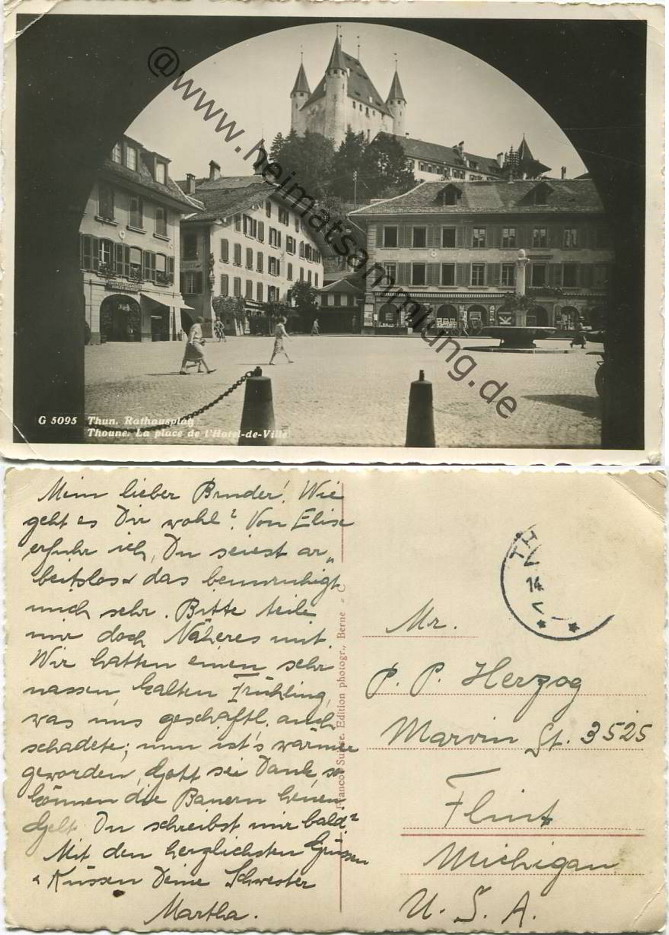 @www.heimatsammlung.de
G 5095 Thun. Rathausplatz
Thoune. La place de l'Hotel-de-Ville
Mein lieber Bruder! Wie
geht es Dir wohl? Von Elise
erfuhr ich, Du seiest ar„
beitslos & das beunruhigt
mich sehr. Bitte teile
mir doch Näheres mit.
Wir hatten einen sehr
nassen kalten Frühling,
was uns geschäftl. auch
schadete; nun ist's wärmer
geworden, Gott sei Dank, so
können die Bauern heuen.
Gelt Du schreibst mir bald?
Mit den herzlichsten Grüssen
& Küssen Deine Schwester
Martha.
Franco-Suisse. Edition photogr., Berne
TH
14
Mr.
P. P. Herzog
Marvin St. 3525
Flint
Michigan
U. S. A.